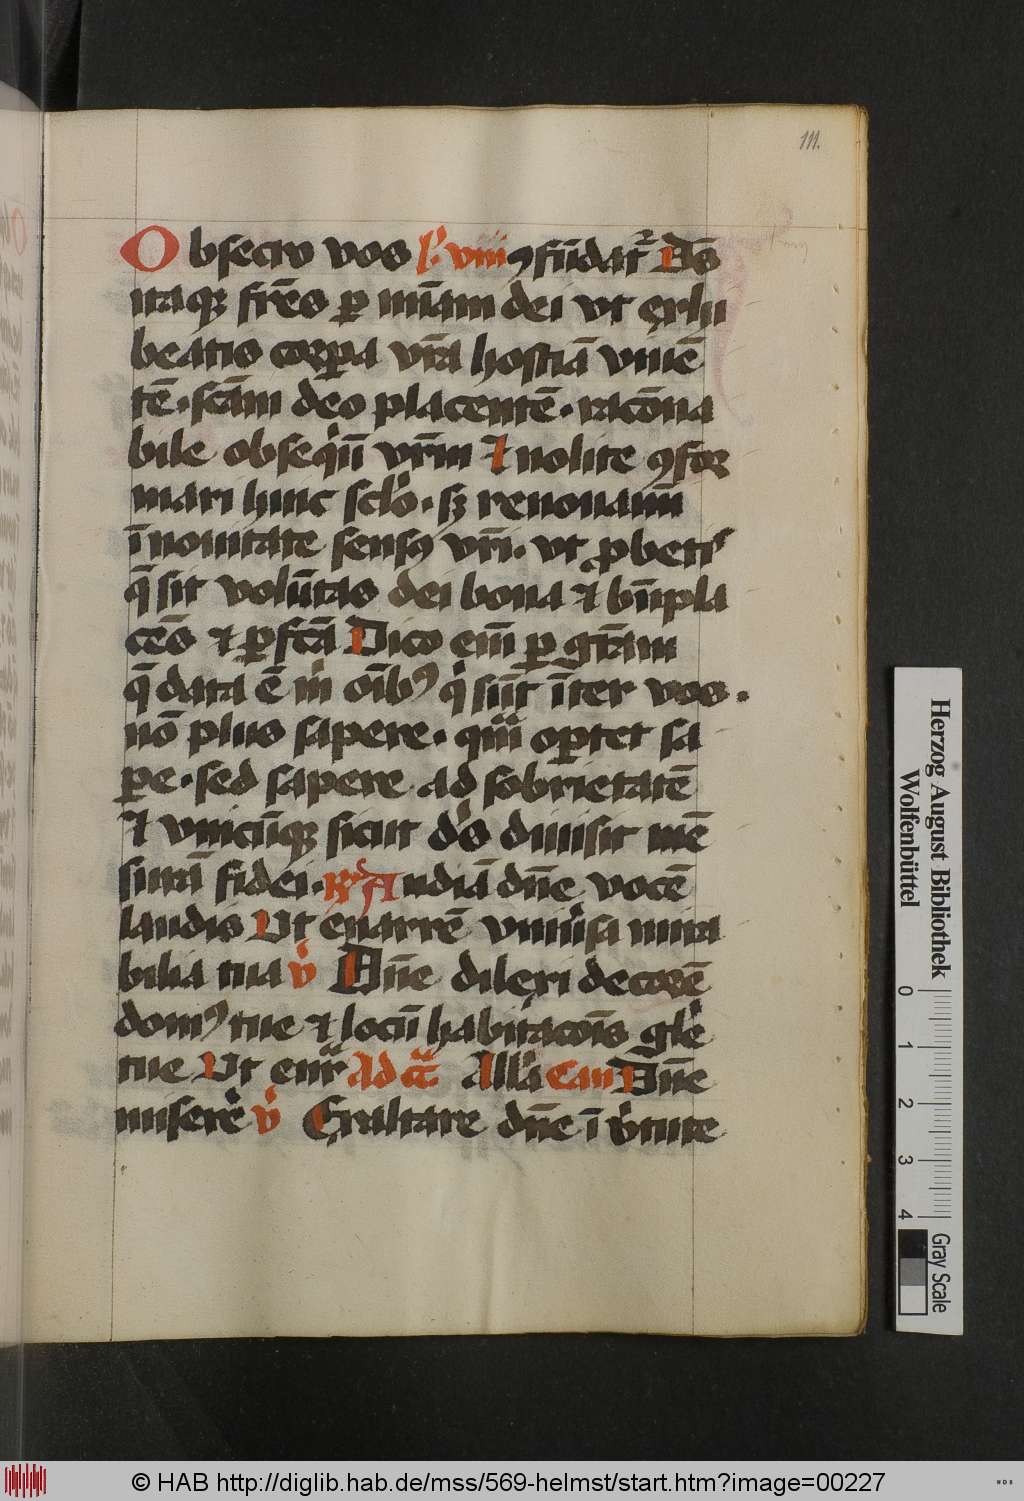 111.
Obsecro vos L. viii ꝯfūdat᷑ Dn̄s
itaqꝫ fr̄es ꝑ mīam dei vt exhi
beatis corꝑa vr̄a hostiā viuē
tē · sc̄am deo placentē · racōna
bile obsequiū vr̄m Et nolite ꝯfor
mari huic sclo · sꝫ renouami
ī nouitate sensꝯ vr̄i · vt ꝓbetis
q̄ sit volūtas dei bona ⁊ bn̄pla
cēs ⁊ ꝑfcā Dico em̄ ꝑ gr̄am
q̄ data ē m̄ oībꝰ q sūt īter vos ·
nō plus sapere · quā oꝑtet sa
ꝑe · sed sapere ad sobrietatē
Et vnicuiqꝫ sicut ds diuisit mē
surā fidei · R Audiā dn̄e vocē
laudis Vt enarrē vniuˀsa mira
bilia tua v Dn̄e dilexi decorē
domꝰ tue ⁊ locū habitacōis glˀe
tue Vt enr̄ Ad cc̄ Allˀa Can Dn̄e
miserē v Exaltare dn̄e ī vˀtute
Herzog August Bibliothek
Wolfenbüttel
0 1 2 3 4
Gray Scale
© HAB http://diglib.hab.de/mss/569-helmst/start.htm?image=00227